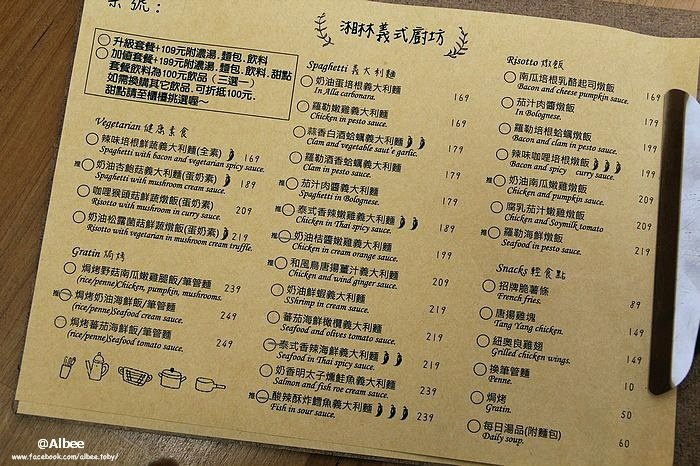 桌號：
湘林義式廚坊
升級套餐+109元附濃湯.麵包.飲料
加值套餐+199元附濃湯.麵包.飲料.甜點
套餐飲料為100元飲品（三選一）
如需換購其它飲品.可折抵100元.
甜點請至櫃檯挑選喔～
Vegetarian 健康素食
辣味培根鮮蔬義大利麵(全素) 169
Spaghetti with bacon and vegetarian spicy sauce.
推 奶油杏鮑菇義大利麵(蛋奶素) 189
Spaghetti with mushroom cream sauce.
咖哩猴頭菇鮮蔬燉飯(蛋奶素) 209
Risotto with mushroom in curry sauce.
奶油松露菌菇鮮蔬燉飯(蛋奶素) 219
Risotto with vegetarian in mushroom cream truffle.
Gratin 焗烤
焗烤野菇南瓜嫩雞腿飯/筆管麵 239
(rice/penne)Chicken, pumpkin, mushrooms.
推 焗烤奶油海鮮飯/筆管麵 249
(rice/penne)Seafood cream sauce.
焗烤蕃茄海鮮飯/筆管麵 249
(rice/penne)Seafood tomato sauce.
Spaghetti 義大利麵
奶油蛋培根義大利麵 169
In Alla carbonara.
羅勒嫩雞義大利麵 169
Chicken in pesto sauce.
蒜香白酒蛤蠣義大利麵 179
Clam and vegetable saut'e garlic.
羅勒酒香蛤蠣義大利麵 179
Clam in pesto sauce.
推 茄汁肉醬義大利麵 179
In Bolognese.
推 泰式香辣嫩雞義大利麵 189
Chicken in Thai spicy sauce.
推 奶油桔醬嫩雞義大利麵 199
Chicken in cream orange sauce.
和風鳥唐揚薑汁義大利麵 209
Chicken and wind ginger sauce.
奶油鮮蝦義大利麵 219
SShrimp in cream sauce.
蕃茄海鮮橄欖義大利麵 219
Seafood and olives tomato sauce.
推 泰式香辣海鮮義大利麵 219
Seafood in Thai spicy sauce.
奶香明太子燻鮭魚義大利麵 239
Salmon and fish roe cream sauce.
推 酸辣酥炸鱈魚義大利麵 239
Fish in sour sauce.
Risotto 燉飯
南瓜培根乳酪起司燉飯 169
Bacon and cheese pumpkin sauce.
茄汁肉醬燉飯 179
In Bolognese.
羅勒培根蛤蠣燉飯 199
Bacon and clam in pesto sauce.
辣味咖哩培根燉飯 199
Bacon and spicy curry sauce.
推 奶油南瓜嫩雞燉飯 209
Chicken and pumpkin sauce.
腐乳茄汁嫩雞燉飯 209
Chicken and Soymilk tomato
推 羅勒海鮮燉飯 219
Seafood in pesto sauce.
Snacks 輕食點
招牌脆薯條 89
French fries.
唐揚雞塊 149
Tang Yang chicken.
紐奧良雞翅 149
Grilled chicken wings.
換筆管麵 10
Penne.
焗烤 50
Gratin.
每日湯品(附麵包) 60
Daily soup.
@Albee
www.facebook.com/albee.toby/